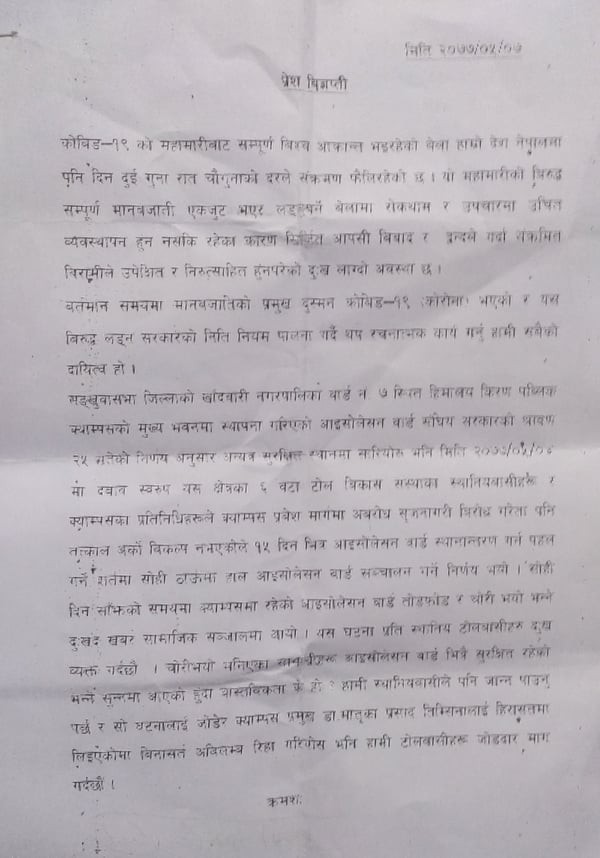 मिति २०७७/०५/०७
प्रेश बिज्ञप्ती
कोबिड-१९ को महामारीबाट सम्पूर्ण विश्व आक्रान्त भइरहेको बेला हाम्रो देश नेपालमा
पनि दिन दुई गुना रात चौगुनाको दरले संक्रमण फैलिरहेको छ । यो महामारीको बिरुद्ध
सम्पूर्ण मानवजाती एकजुट भएर लड्नुपर्ने बेलामा रोकथाम र उपचारमा उचित
व्यवस्थापन हुन नसकि रहेका कारण सिर्जित आपसी बिबाद र द्वन्दले गर्दा संक्रमित
बिरामीले उपेक्षित र निरुत्साहित हुनुपरेको दुःख लाग्दो अवस्था छ ।
वर्तमान समयमा मानवजातिको प्रमुख दुस्मन कोबिड-१९ (कोरोना) भएको र यस
बिरुद्ध लड्न सरकारको निति नियम पालना गर्दै थप रचनात्मक कार्य गर्नु हामी सबैको
दायित्व हो ।
सङ्खुवासभा जिल्लाको खाँदवारी नगरपालिका वार्ड नं. ७ स्थित हिमालय किरण पब्लिक
क्याम्पसको मुख्य भवनमा स्थापना गरिएको आइसोलेसन वार्ड संघिय सरकारको श्रावण
२५ गतेको निर्णय अनुसार अन्यत्र सुरक्षित स्थानमा सारियोस् भनि मिति
मा दवाव स्वरुप यस क्षेत्रका ६ वटा टोल बिकास संस्थाका स्थानियबासीहरू र
क्याम्पसका प्रतिनिधिहरूले क्याम्पस प्रवेश मार्गमा अबरोध सृजनागरी बिरोध गरेता पनि
तत्काल अर्को बिकल्प नभएकोले १५ दिन भित्र आइसोलेसन वार्ड स्थानान्तरण गर्न पहल
गर्ने शर्तमा सोही ठाऊँमा हाल आइसोलेसन वार्ड सञ्चालन गर्ने निर्णय भयो । सोही
दिन साँझको समयमा क्याम्पसमा रहेको आइसोलेसन वार्ड तोडफोड र चोरी भयो भन्ने
दुःखद खबर सामाजिक सञ्जालमा आयो । यस घटना प्रति स्थानिय टोलबासीहरू दुःख
व्यक्त गर्दछौं । चोरीभयो भनिएका सामाग्रीहरू आइसोलेसन वार्ड भित्रै सुरक्षित रहेको
भन्ने सुन्नमा आएको हुँदा वास्तविकता के हो ? हामी स्थानियबासीले पनि जान्न पाउनु
पर्छ र सो घटनालाई जोडेर क्याम्पस प्रमुख डा. मातृका प्रसाद तिम्सिनालाई हिरासतमा
लिइएकोमा बिनासर्त अबिलम्ब रिहा गरियोस भनि हामी टोलबासीहरू जोडदार माग
गर्दछौं ।
क्रमशः